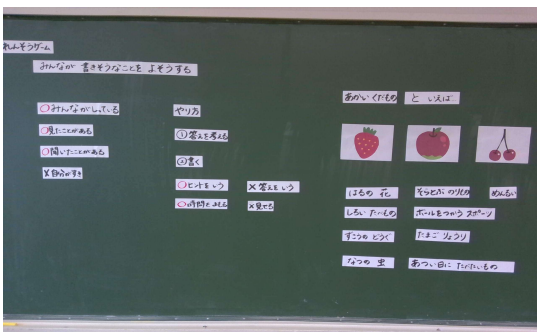 れんそうゲーム
みんなが 書きそうなことを よそうする
○みんながしっている
○見たことがある
○聞いたことがある
×自分がすき
やり方
①答えを考える
②書く
○ヒントをいう ×答えをいう
×見せる
あかいくだもの と いえば
はるの 花 そらとぶ のりもの めんるい
しろい たべもの ボールをつかう スポーツ
そうじの どうぐ たまご りょうり
なつの 虫 あつい日に たべたいもの